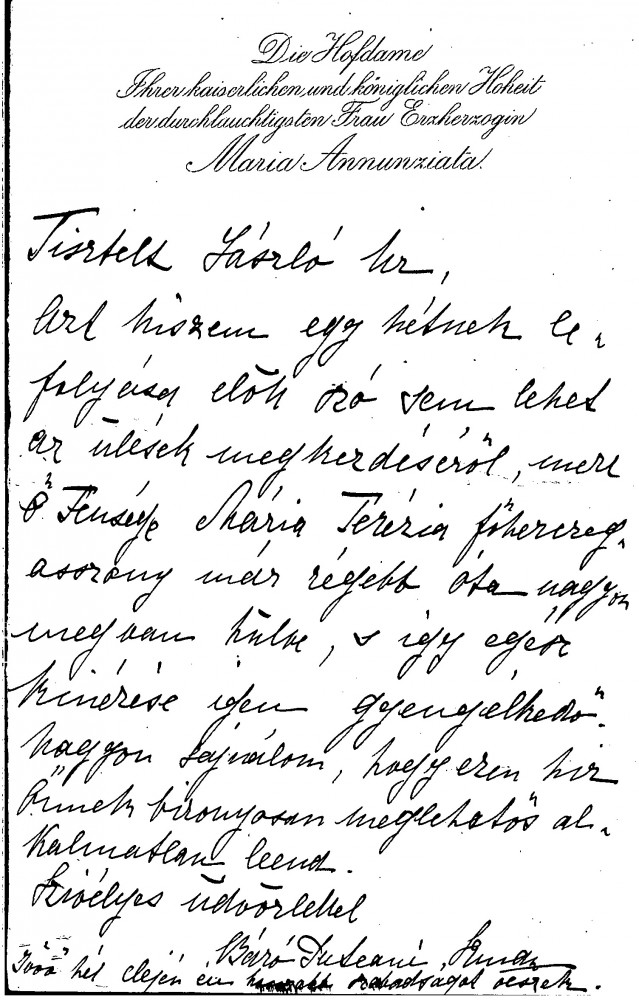 Die Hofdame
Ihrer kaiserlichen und königlichen Hoheit
der durchlauchtigsten Frau Erzherzogin
Maria Annunziata.
Tisztelt László Ur,
Azt hiszem egy hétnek le-
folyása előtt szó sem lehet
az ülések megkezdéséről, mert
Ő Fensége Mária Terézia főherczeg-
asszony már régebb óta nagyon
megvan hülve, s így egész
kinézése igen gyengélkedő.
Nagyon sajnálom, hogy ezen hir
Önnek bizonyosan meglehetős al-
kalmatlan leend.
Szivélyes üdvözlettel
Báró
Jövő hét elején én szabadságot veszek.